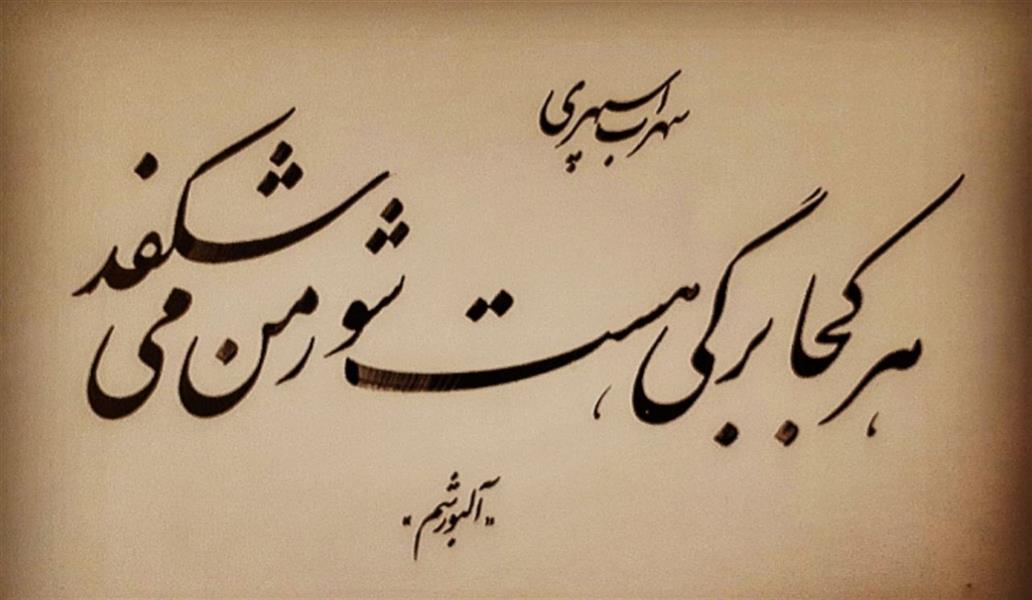 سهراب سپهری
هر کجا برگی هست شور من می شکفد